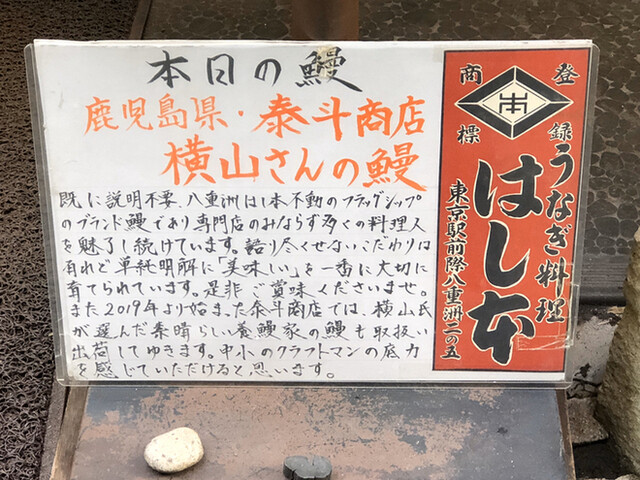 本日の鰻
鹿児島県・泰斗商店
横山さんの鰻
既に説明不要、八重洲はし本不動のフラッグシップ
のブランド鰻であり専門店のみならず多くの料理人
を魅了し続けています。語り尽くせないこだわりは
有れど単純明解に「美味しい」を一番に大切に
育てられています。是非ご賞味くださいませ。
また2019年より始まった泰斗商店では、横山氏
が選んだ素晴らしい養鰻家の鰻も取扱い
出荷してゆきます。中小のクラフトマンの底力
を感じていただけると思います。
登録
商標
うなぎ料理
はし本
東京駅前際八重洲二の五